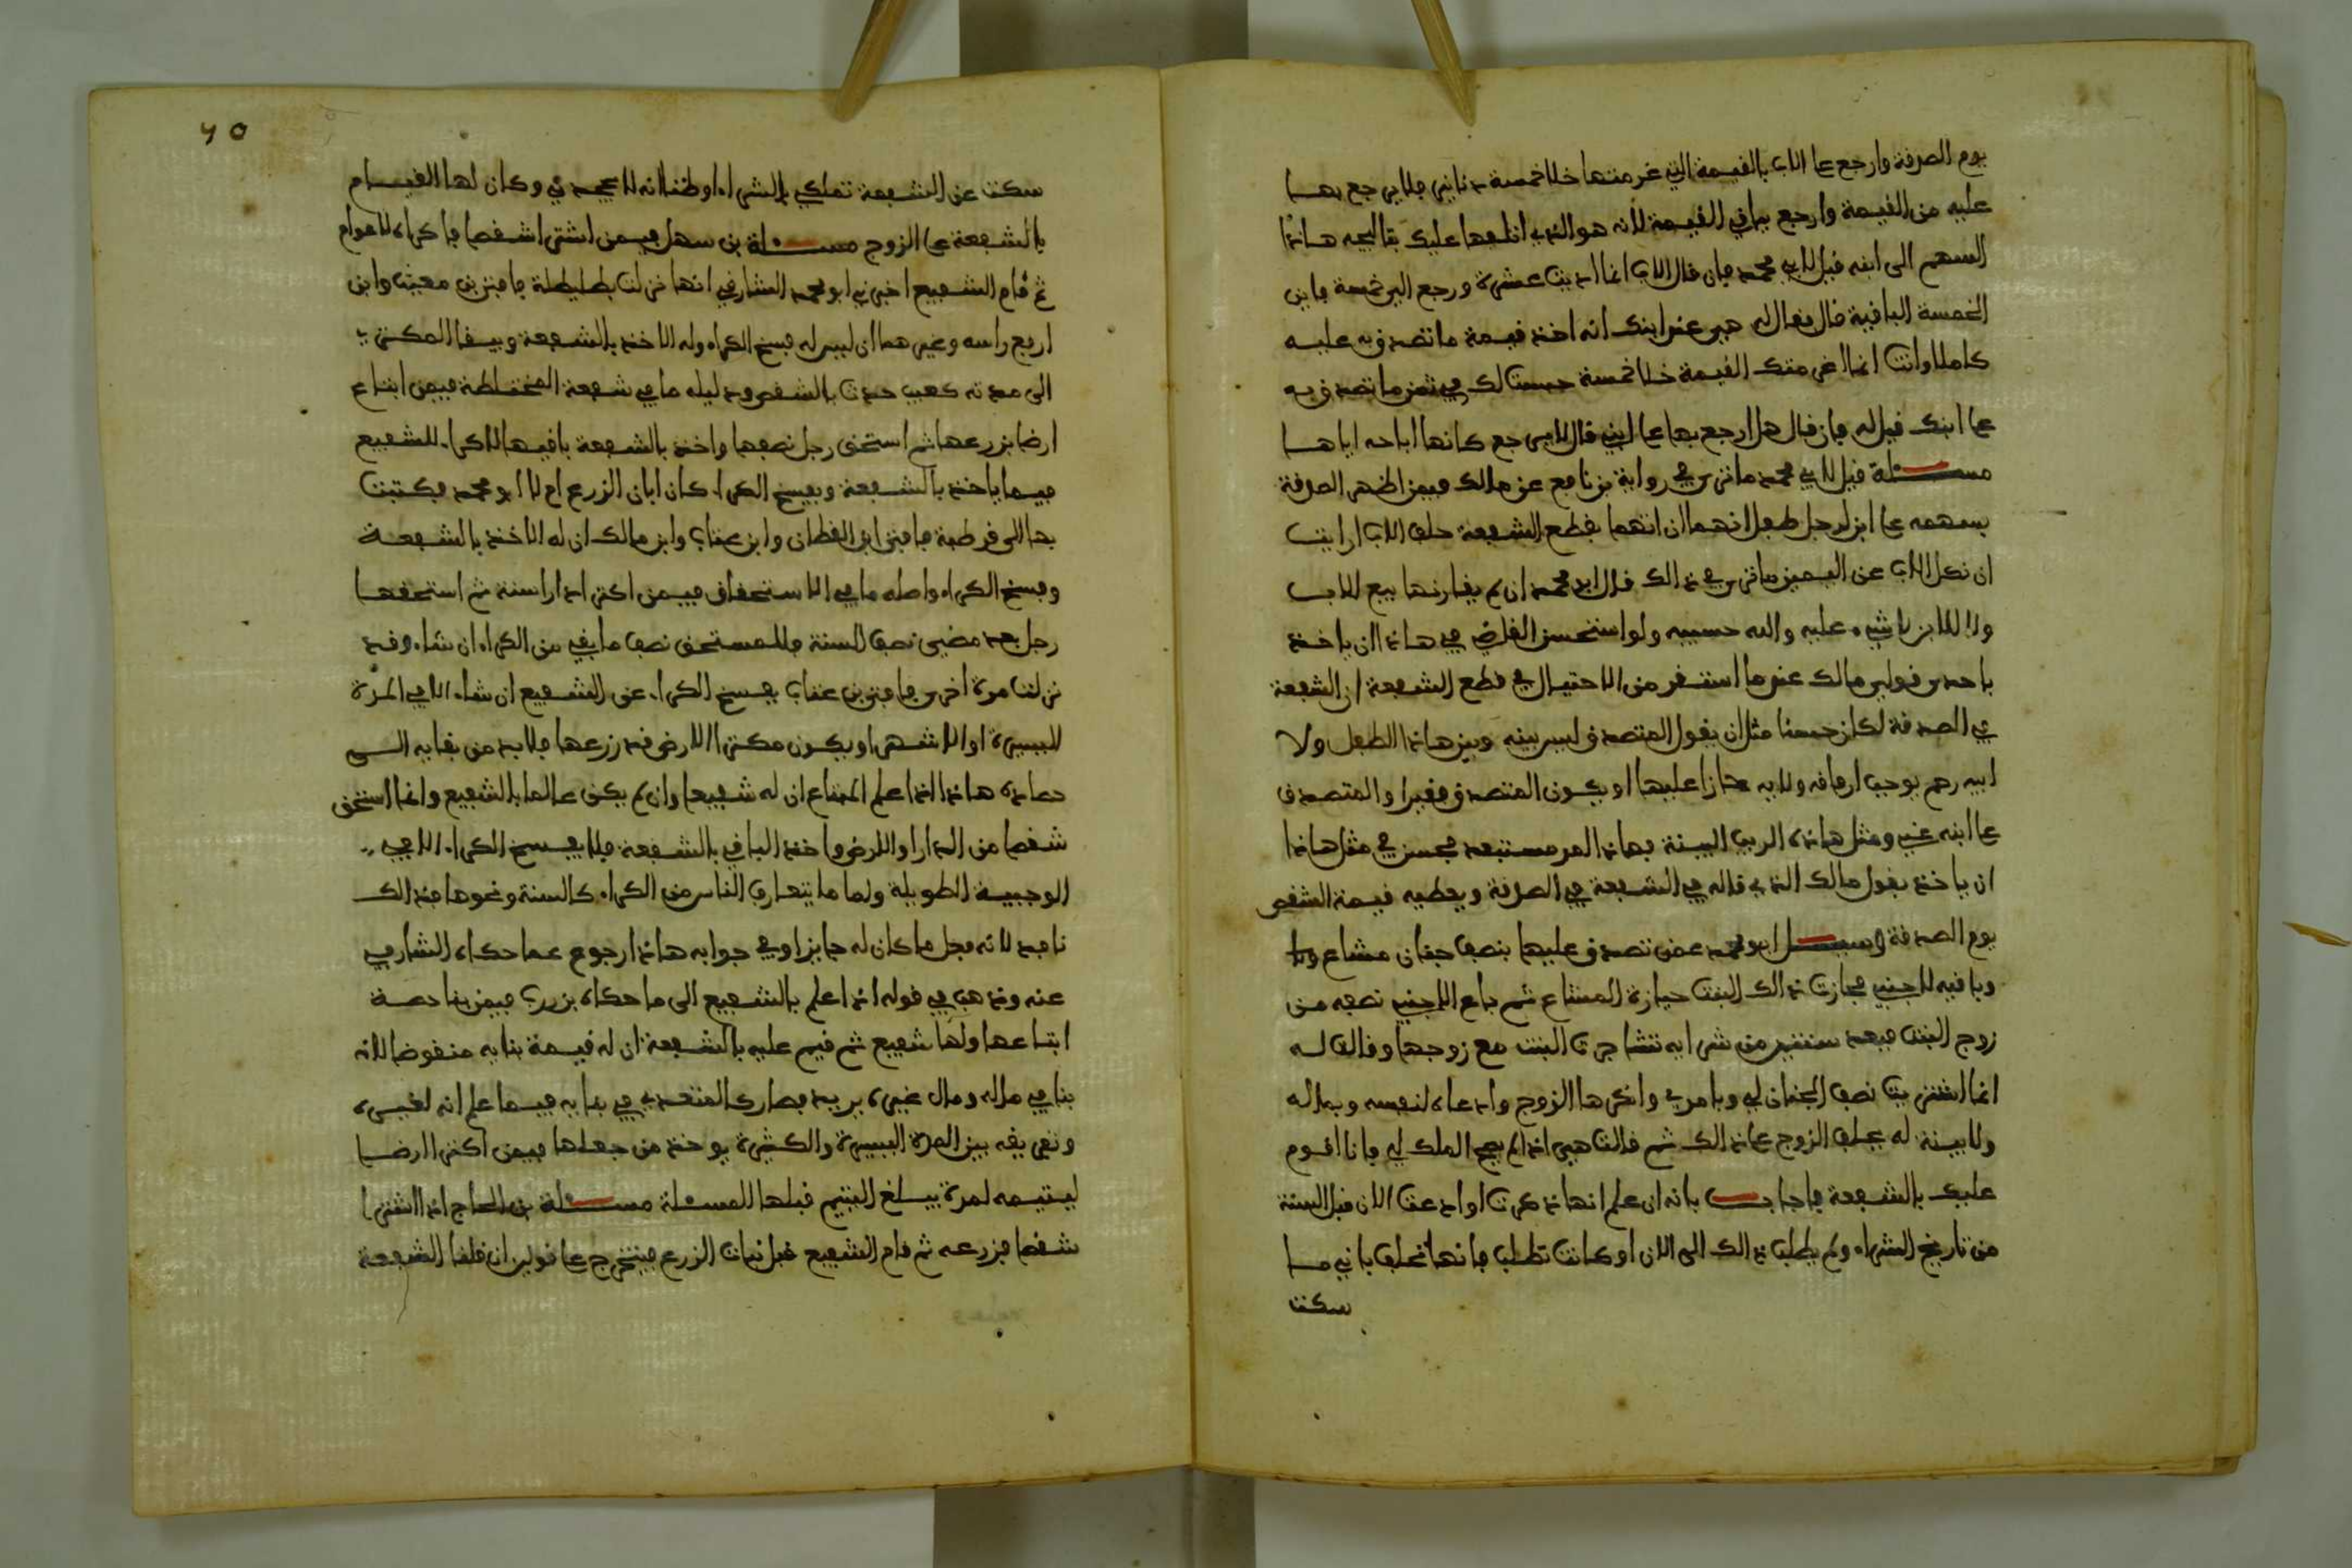 يوم الصدقة وارجع على الاب بالقيمة التي غرمتها خلا خمسة دنانير فلا يرجع بها
عليه من القيمة وارجع بباقي القيمة لانه هو الذي اتلفها عليك بتاليجه هاذا
السهم الى ابنه قيل لابي محمد فان قال الاب انما اديت عشرة ورجع الي خمسة فاين
الخمسة الباقية قال يقال له هي عند ابنك انه اخذ قيمة ما تصدق به عليه
كاملا وانت انما اغرمتك القيمة خلا خمسة حبست لك في ثمن ما تصدق به
على ابنك قيل له فان قال هل ارجع بها على ابني قال لا يرجع كانها اباحه اياها
مسئلة قيل لابي محمد ما ترى في رواية بن نافع عن مالك فيمن اظهر الصدقة
بسهمه على ابن لرجل طفل انهما ان اتهما بقطع الشفعة حلف الاب ارايت
ان نكل الاب عن اليمين ما ترى في ذالك قال ابو محمد ان لم يقارنها بيع للاب
ولا للابن لا شيء عليه والله حسيبه ولو استحسن القاضي في هاذا ان ياخذ
باحدى قولي مالك عند ما استقر من الاحتيال في قطع الشفعة ان الشفعة
في الصدقة لكان حسنا مثل ان يقول المتصدق ليس بينه وبين هاذا الطفل ولا
ابيه رحم يوجب ارفاقه ولا يد جازا عليها او يكون المتصدق فقيرا والمتصدق
على ابنه غني ومثل هاذه الريب البينة فهاذا امر مستبعد فحسن في مثل هاذا
ان ياخذ بقول مالك الذي قاله في الشفعة في الصدقة ويعطيه قيمة الشقص
يوم الصدقة وسئل ابو محمد عمن تصدق عليها بنصف جنان مشاع
وباقيه لاجنبي فحازت ذالك البنت حيازة المشاع ثم باع الاجنبي نصفه من
زوج البنت فبعد سنتين من شرايه تشاجرت البنت مع زوجها وقالت له
انما اشتريت نصف الجنان لي وبامري وانكرها الزوج وادعاه لنفسه وبماله
ولا بينة له فحلف الزوج على ذالك ثم قالت هي اذا لم يصح الملك لي فانا اقوم
عليك بالشفعة فاجاب بانه ان علم انها ذكرت او ادعت الان قبل السنة
من تاريخ الشراء ولم يطلب ذالك الى الان او كانت تطلب فانها تحلف باني ما
سكت
٦٥
سكتت عن الشفعة تملكي بالشراء او ظنا انه لا يجحدني وكان لها القيام
بالشفعة على الزوج مسئلة بن سهل فيمن اشترى شقصا فاكراه لاعوام
ثم قام الشفيع اخبرني ابو محمد الشارفي انها نزلت بطليطلة فافتى بن مغيث وابن
ارفع راسه وغيرهما ان ليس له فسخ الكراء وله الاخذ بالشفعة ويبقى المكتري
الى مدته كعيب حدث بالشقص ودليله ما في شفعة المختلطة فيمن ابتاع
ارضا بزرعها ثم استحق رجل نصفها واخذ بالشفعة باقيها لا كراء للشفيع
فيما ياخذ بالشفعة ويفسخ الكراء كان ابان الزرع ام لا ابو محمد فكتبت
بها الى قرطبة فافتى ابن القطان وابن عتاب وابن مالك ان له الاخذ بالشفعة
وفسخ الكراء واصله ما في الاستحقاق فيمن اكترى دارا سنة ثم استحقها
رجل بعد مضي نصف السنة فللمستحق نصف ما بقي من الكراء ان شاء وقد
نزلت مرة اخرى فافتى بن عتاب بفسخ الكراء عن الشفيع ان شاء الا في المدة
اليسيرة او الاشهر او يكون مكتري الارض قد زرعها فلا بد من بقايه الى
حصاده هاذا اذا علم المبتاع ان له شفيعا وان لم يكن عالما بالشفيع وانما استحق
شقصا من الدار او الارض واخذ الباقي بالشفعة فلا يفسخ الكراء الا في
الوجيبة الطويلة واما ما يتعارف الناس من الكراء كالسنة ونحوها فذالك
نافذ لانه فعل ما كان له جايزا وفي جوابه هاذا رجوع عما حكاه الشارفي
عنه وذهب في قوله اذا علم بالشفيع الى ما حكاه بن زرب فيمن بنا دعة
ابتاعها ولها شفيع ثم قيم عليه بالشفعة ان له قيمة بنايه منقوضا لانه
بنا في ماله ومال غيره يريد فصار كالمتعدي في بنايه فيما علم انه لغيره
وتفريقه بين المدة اليسيرة والكثيرة يوخذ من جعلها فيمن اكترى ارضا
ليتيمه لمدة فيبلغ اليتيم قبلها المسئلة مسئلة بن الحاج اذا اشترى
شقصا فزرعه ثم قام الشفيع قبل نبات الزرع فيتخرج على قولين ان قلنا الشفعة